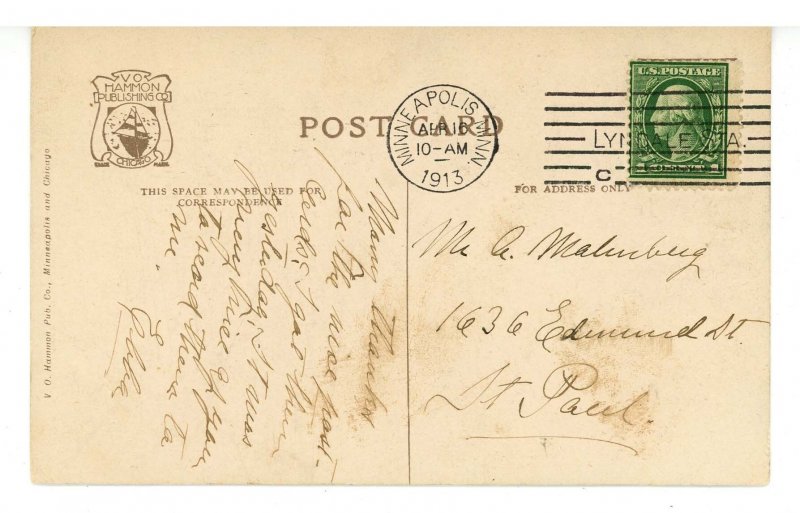 V O
HAMMON
PUBLISHING CO
CHICAGO
TRADE MARK
POST CARD
THIS SPACE MAY BE USED FOR
CORRESPONDENCE
FOR ADDRESS ONLY
V. O. Hammon Pub. Co., Minneapolis and Chicago
MINNEAPOLIS, MINN.
APR 16
10-AM
1913
LYNDALE STA.
C
U.S. POSTAGE
Many thanks
for the nice post-
cards, I got them
yesterday, it was
nice of you
to send them to
me.
Ella
Mr A. Malmberg
1636 Edmund St
St Paul.